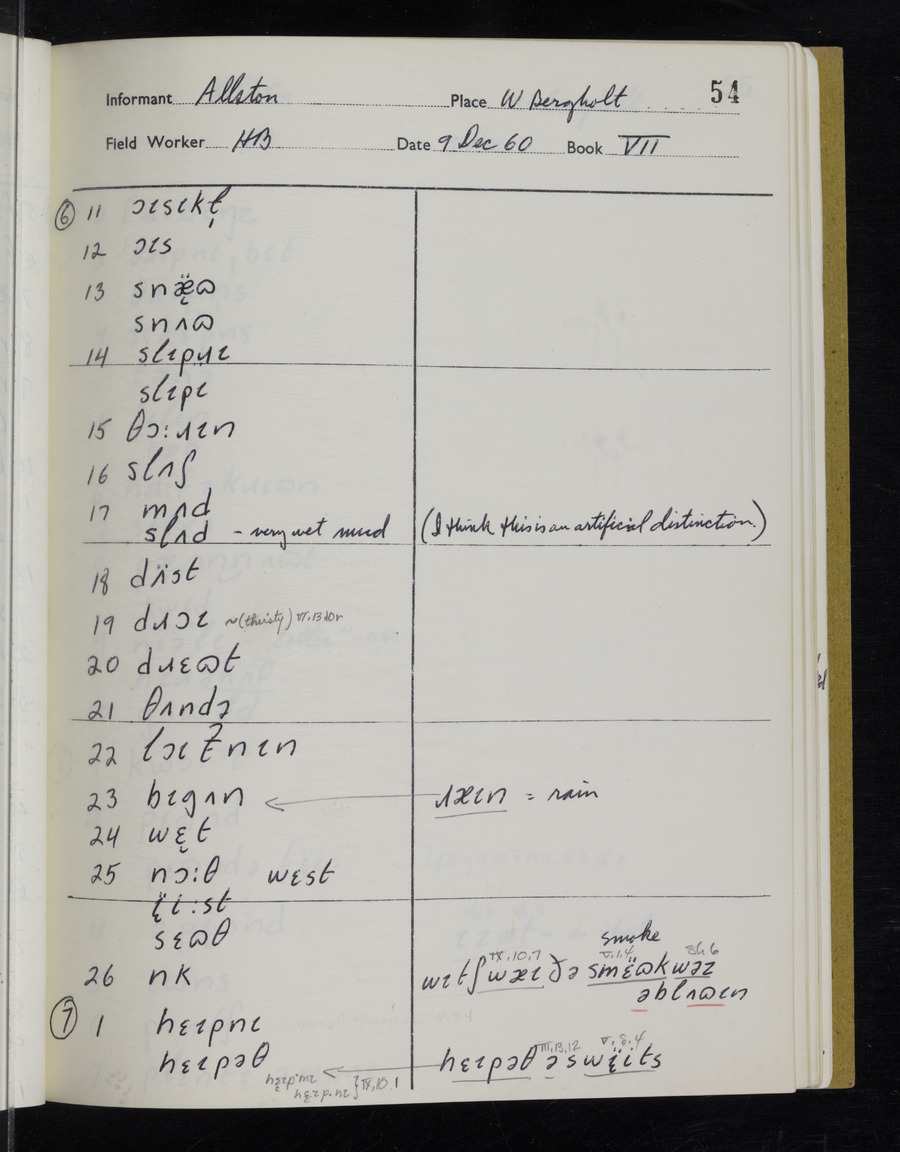 Informant Allston Place W Bergholt 54
Field Worker HB Date 9 Dec 60 Book VII
⑥ 11 ɔɪsɪkɫ̩
12 ɔɪs
13 snæ̈ɷ
snʌɷ
14 slɪpɹɪ
slɪpɪ
15 θɔːɹɪn
16 slʌʃ
17 mʌd
slʌd - very wet mud (I think this is an artificial distinction.)
18 dʌ̈st
19 dɹɔɪ ~(thirsty) VI.13.10r
20 dɹɛɷt
21 θʌndə
22 lɔɪʔnɪn
23 bɪgʌn ɹæɪn = rain
24 wɛ̣t
25 nɔːθ wɛst
ɪ̈iːst
sɛɷθ
smoke
26 nk wɪtʃ wæɪ IX.10.7 ðə smɛ̈ɷk V.1.4 wəz
əblʌɷɪn
⑦ 1 hɛɪpnɪ
hɛɪpəθ hɛɪpəθ ə III.13.12 swɪ̈its V.8.4
hɛɪp.mɪ
hɛɪp.nɪ } IX.10.1